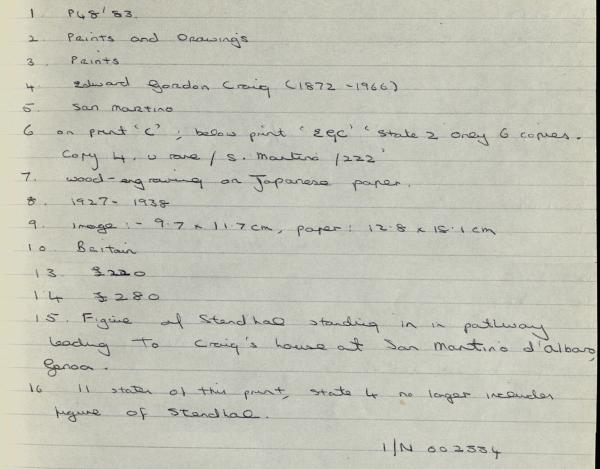 1. P48'83.
2 Prints and Drawings
3. Prints
4. Edward Gordon Craig (1872 - 1966)
5. San Martino
6 on print 'C' ; below print 'EGC' 'State 2 only 6 copies.
Copy 4. v rare / S. Martino /222'
7. wood-engraving on Japanese paper.
8. 1927 - 1938
9. image :- 9.7 x 11.7 cm, paper: 12.8 x 15.1 cm
10. Britain
13. £220
14 £280
15. Figure of Stendhal standing in in pathway
leading to Craig's house at San Martino d'albaro,
Genoa.
16 11 states of this print, state 4 no longer includes
figure of Stendhal.
I/N 002334